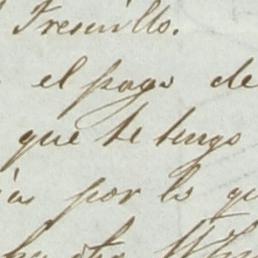 Fresnillo.
el pago de
que te tengo
por lo qu